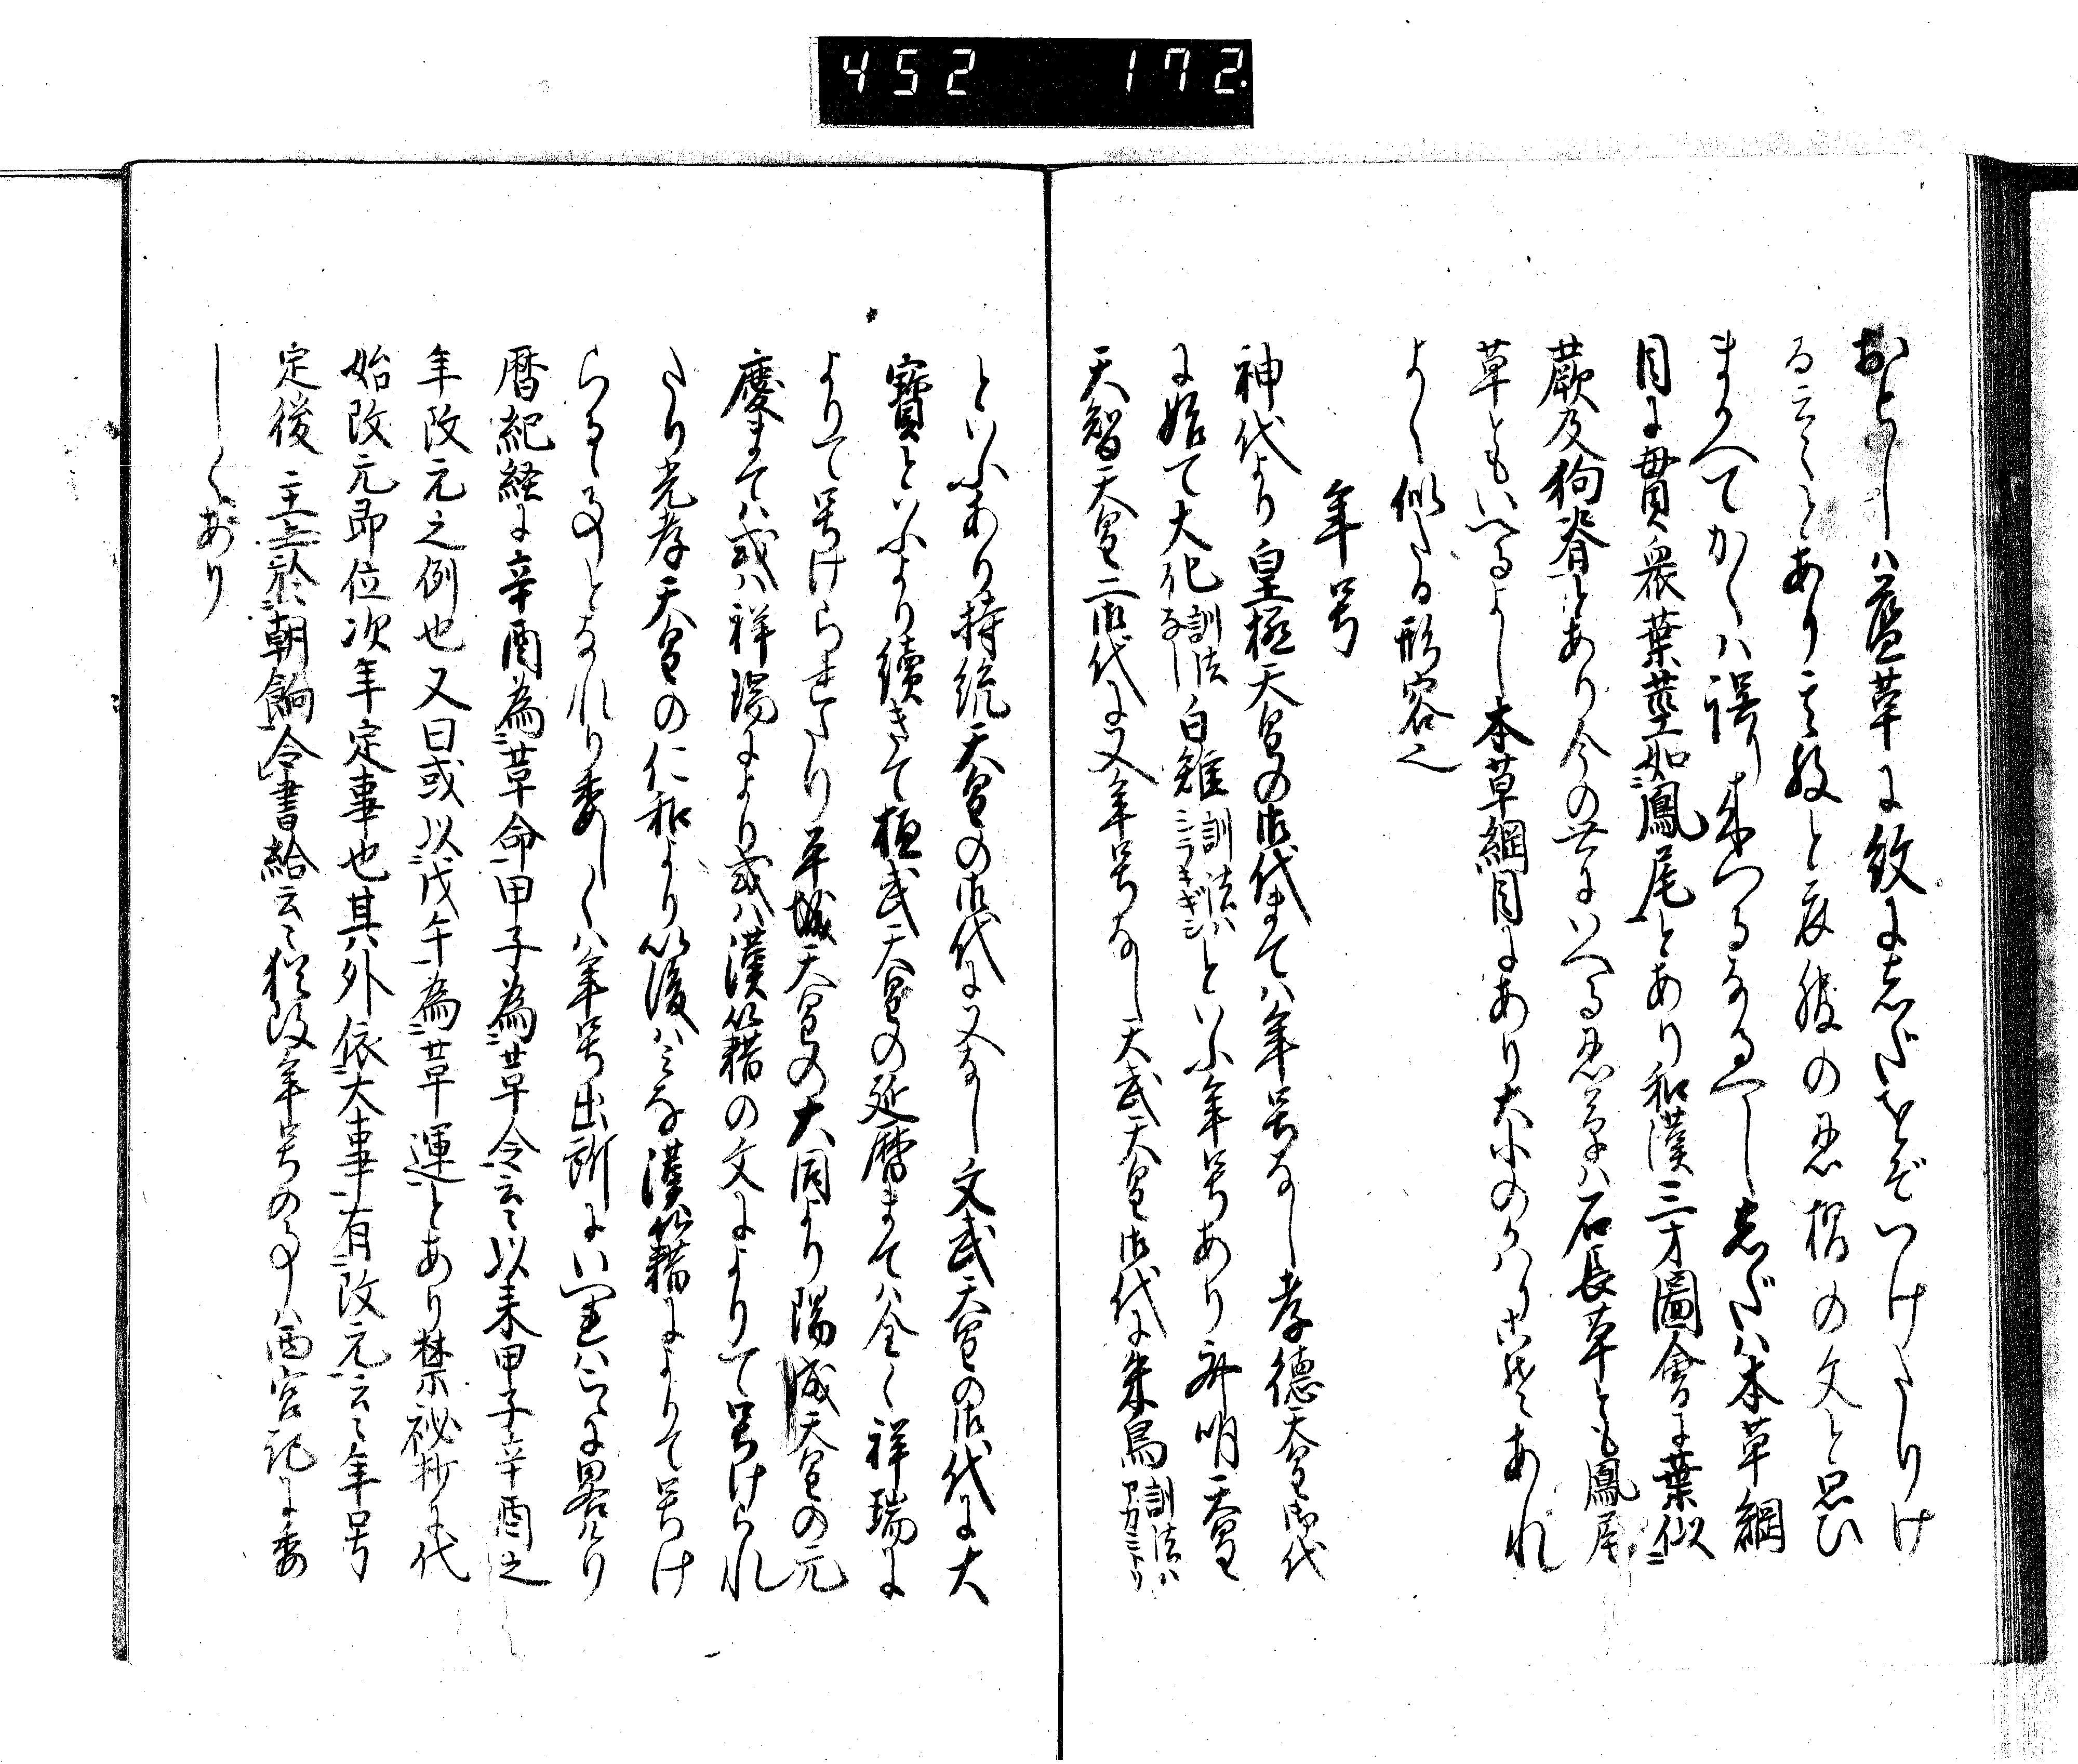 452 172
おとしハ藍革に紋にしだをぞつけたりけ
る云々とあり其故と衣服の忍摺の文と思ひ
まかへてかくハ誤り来つるなるへし しだハ本草綱
目に貫衆葉茎如鳳尾とあり和漢三才圖會に葉似
蕨及狗脊とあり今の世にいへる忍草ハ石長草とも鳳尾
草ともいへるよし本草綱目にあり大小のかハりこそあれ
よく似たる形容也
年号
神代より皇極天皇の御代まてハ年号なし孝徳天皇御代
に始て大化訓法なし白雉訓法ハシラキギシといふ年号あり斉明天皇
天智天皇二御代に又年号なし天武天皇御代に朱鳥訓法ハアカミトリ
といふあり持統天皇の御代に又なし文武天皇の御代に大
寶といふより續きて桓武天皇の延暦まてハ全く祥瑞に
よりて号けられたり平城天皇の大同より陽成天皇の元
慶まてハ或ハ祥瑞により或ハ漢籍の文によりて号けられ
たり光孝天皇の仁和より以後ハミな漢籍によりて号け
らるゝ事となれり委しくハ年号出所にいへれハこゝに畧けり
暦紀経に辛酉為革命甲子為革令云々以来甲子辛酉之
年改元之例也又曰或以戊午為革運とあり禁秘抄に代
始改元即位次年定事也其外依大事有改元云々年号
定後主上於朝餉令書給云々猶改年号の事ハ西宮記に委
しくあり